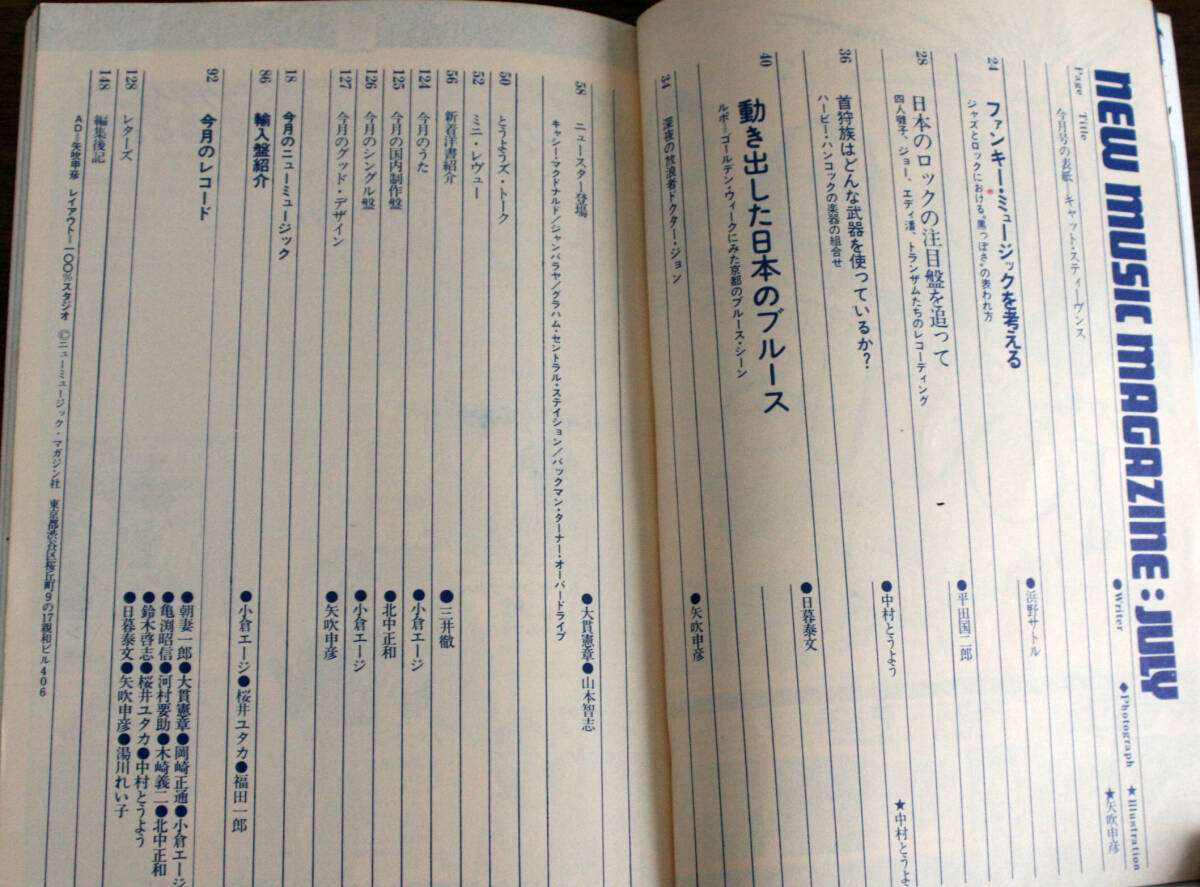 new music magazine : july
Page Title ●Writer ◆Photograph ★Illustration
今月号の表紙―キャット・スティーヴンス ★矢吹申彦
24 ファンキー・ミュージックを考える ●浜野サトル
ジャズとロックにおける“黒っぽさ”の表われ方
28 日本のロックの注目盤を追って ●平田国二郎
四人囃子、ジョー、エディ藩、トランザムたちのレコーディング
36 首狩族はどんな武器を使っているか? ●中村とうよう ★中村とうよ
ハービー・ハンコックの楽器の組合せ
40 動き出した日本のブルース ●日暮泰文
ルポ―ゴールデン・ウィークにみた京都のブルース・シーン
34 深夜の放浪者ドクター・ジョン ●矢吹申彦
58 ニュースター登場 ●大貫憲章●山本智志
キャシー・マクドナルド/ジャンバラヤ/グラハム・セントラル・ステイション/バックマン・ターナー・オーバードライブ
50 とうようズ・トーク
52 ミニ・レヴュー
56 新着洋書紹介 ●三井徹
124 今月のうた ●小倉エージ
125 今月の国内制作盤 ●北中正和
126 今月のシングル盤 ●小倉エージ
127 今月のグッド・デザイン ●矢吹申彦
18 今月のニューミュージック
86 輸入盤紹介 ●小倉エージ●桜井ユタカ●福田一郎
92 今月のレコード
●朝妻一郎●大貫憲章●岡崎正通●小倉エージ
●亀渕昭信●河村要助●木崎義二●北中正和
●鈴木啓志●桜井ユタカ●中村とうよう
●日暮泰文●矢吹申彦●湯川れい子
128 レターズ
148 編集後記
AD―矢吹申彦 レイアウト―100%スタジオ ©ニューミュージック・マガジン社 東京都渋谷区桜丘町9の17親和ビル406